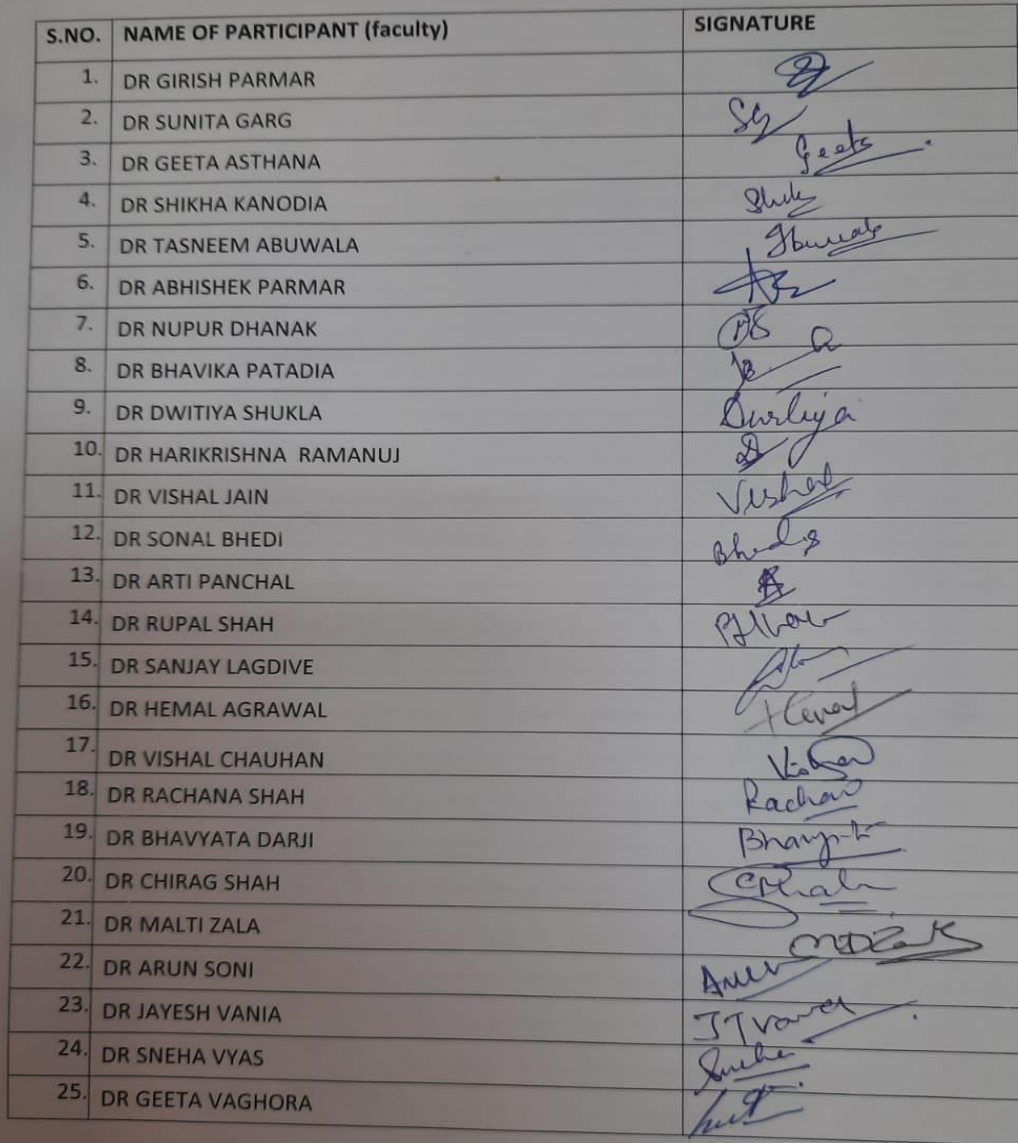 S.NO. NAME OF PARTICIPANT (faculty) SIGNATURE
1. DR GIRISH PARMAR
2. DR SUNITA GARG
3. DR GEETA ASTHANA Geeta
4. DR SHIKHA KANODIA
5. DR TASNEEM ABUWALA
6. DR ABHISHEK PARMAR
7. DR NUPUR DHANAK
8. DR BHAVIKA PATADIA
9. DR DWITIYA SHUKLA
10. DR HARIKRISHNA RAMANUJ
11. DR VISHAL JAIN Vishal
12. DR SONAL BHEDI
13. DR ARTI PANCHAL
14. DR RUPAL SHAH
15. DR SANJAY LAGDIVE
16. DR HEMAL AGRAWAL
17. DR VISHAL CHAUHAN
18. DR RACHANA SHAH
19. DR BHAVYATA DARJI
20. DR CHIRAG SHAH
21. DR MALTI ZALA
22. DR ARUN SONI
23. DR JAYESH VANIA
24. DR SNEHA VYAS
25. DR GEETA VAGHORA